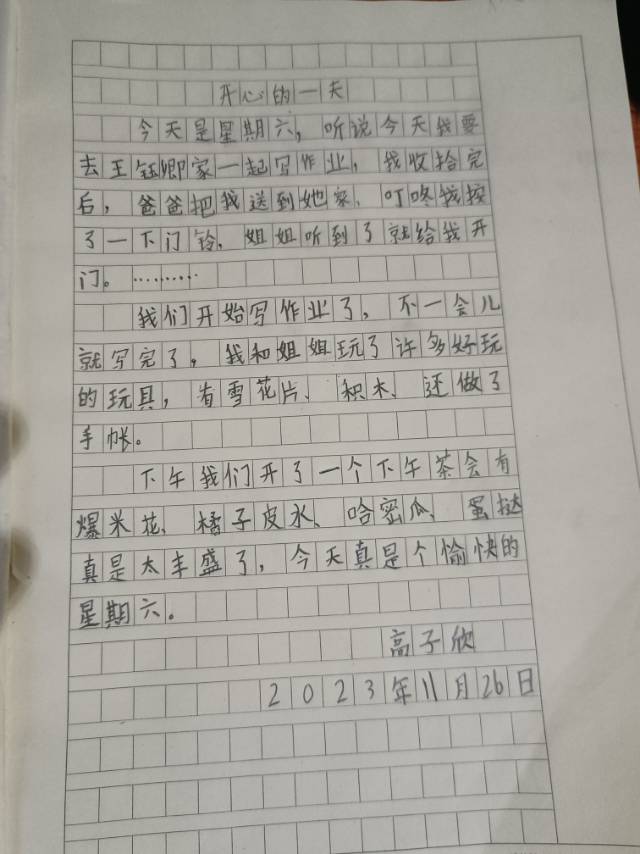 开心的一天
今天是星期六，听说今天我要
去王钰卿家一起写作业，我收拾完
后，爸爸把我送到她家、叮咚我按
了一下门铃，姐姐听到了就给我开
门。………
我们开始写作业了，不一会儿
就写完了，我和姐姐玩了许多好玩
的玩具，有雪花片、积木、还做了
手帐。
下午我们开了一个下午茶会有
爆米花、橘子皮水、哈密瓜、蛋挞
真是太丰盛了，今天真是个愉快的
星期六。
高子欣
2023年11月26日